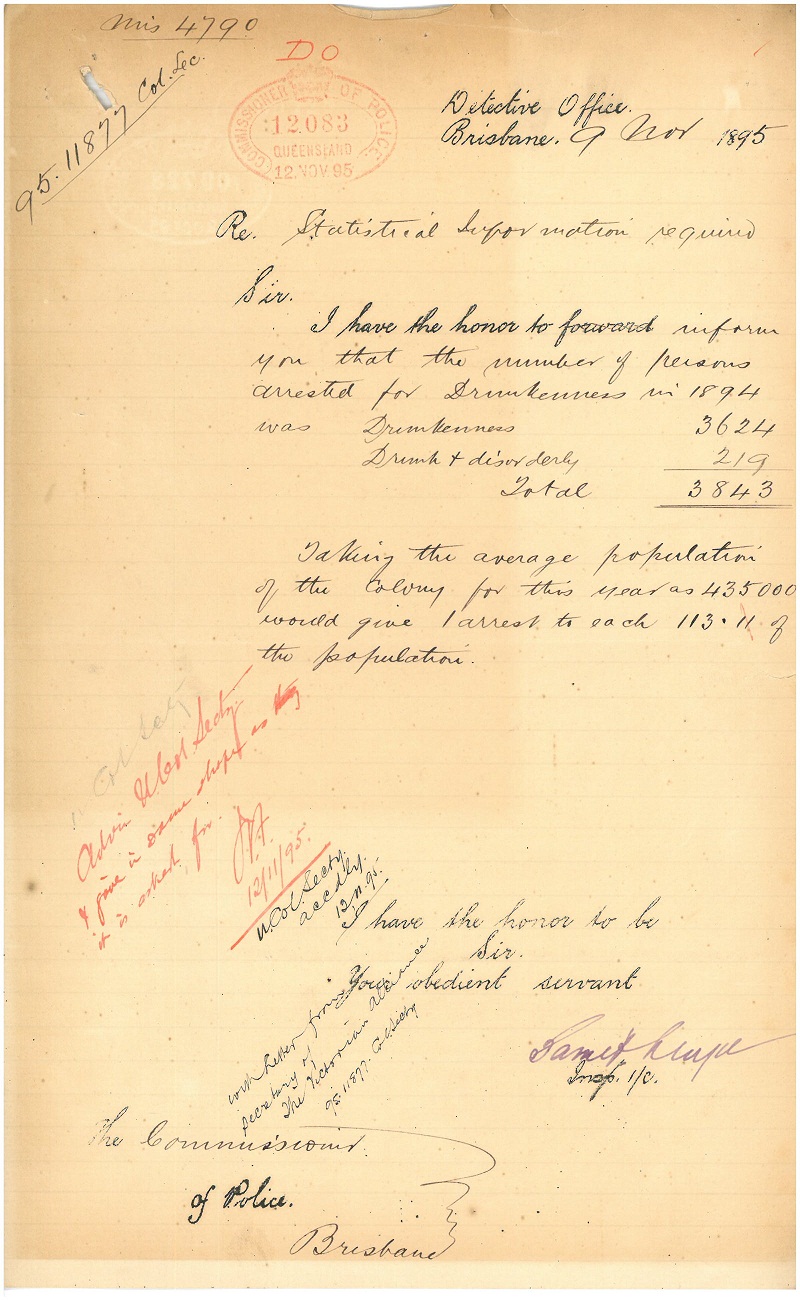 Mis 4790
95.11877 Col. Sec.
DO
COMMISSIONER OF POLICE
12083
QUEENSLAND
12.NOV.95
Detective Office.
Brisbane. 9 Nov 1895
Re. Statistical Information required
Sir.
I have the honor to forward inform
you that the number of persons
arrested for Drunkenness in 1894
was Drunkenness 3624
Drunk + disorderly 219
Total 3843
Taking the average population
of the Colony for this year as 435000
would give 1 arrest to each 113.11 of
the population.
Col Secty
Advise U Col. Secty.
& give in same shape as
it is asked for.
12/11/95.
U. Col. Secty.
accdly.
12.11.95.
I have the honor to be
Sir.
Your obedient servant
Insp. 1/c.
with letter from
secretary of
The Victorian Alliance
95.11877. Col. Secty
The Commissioner
of Police.
Brisbane